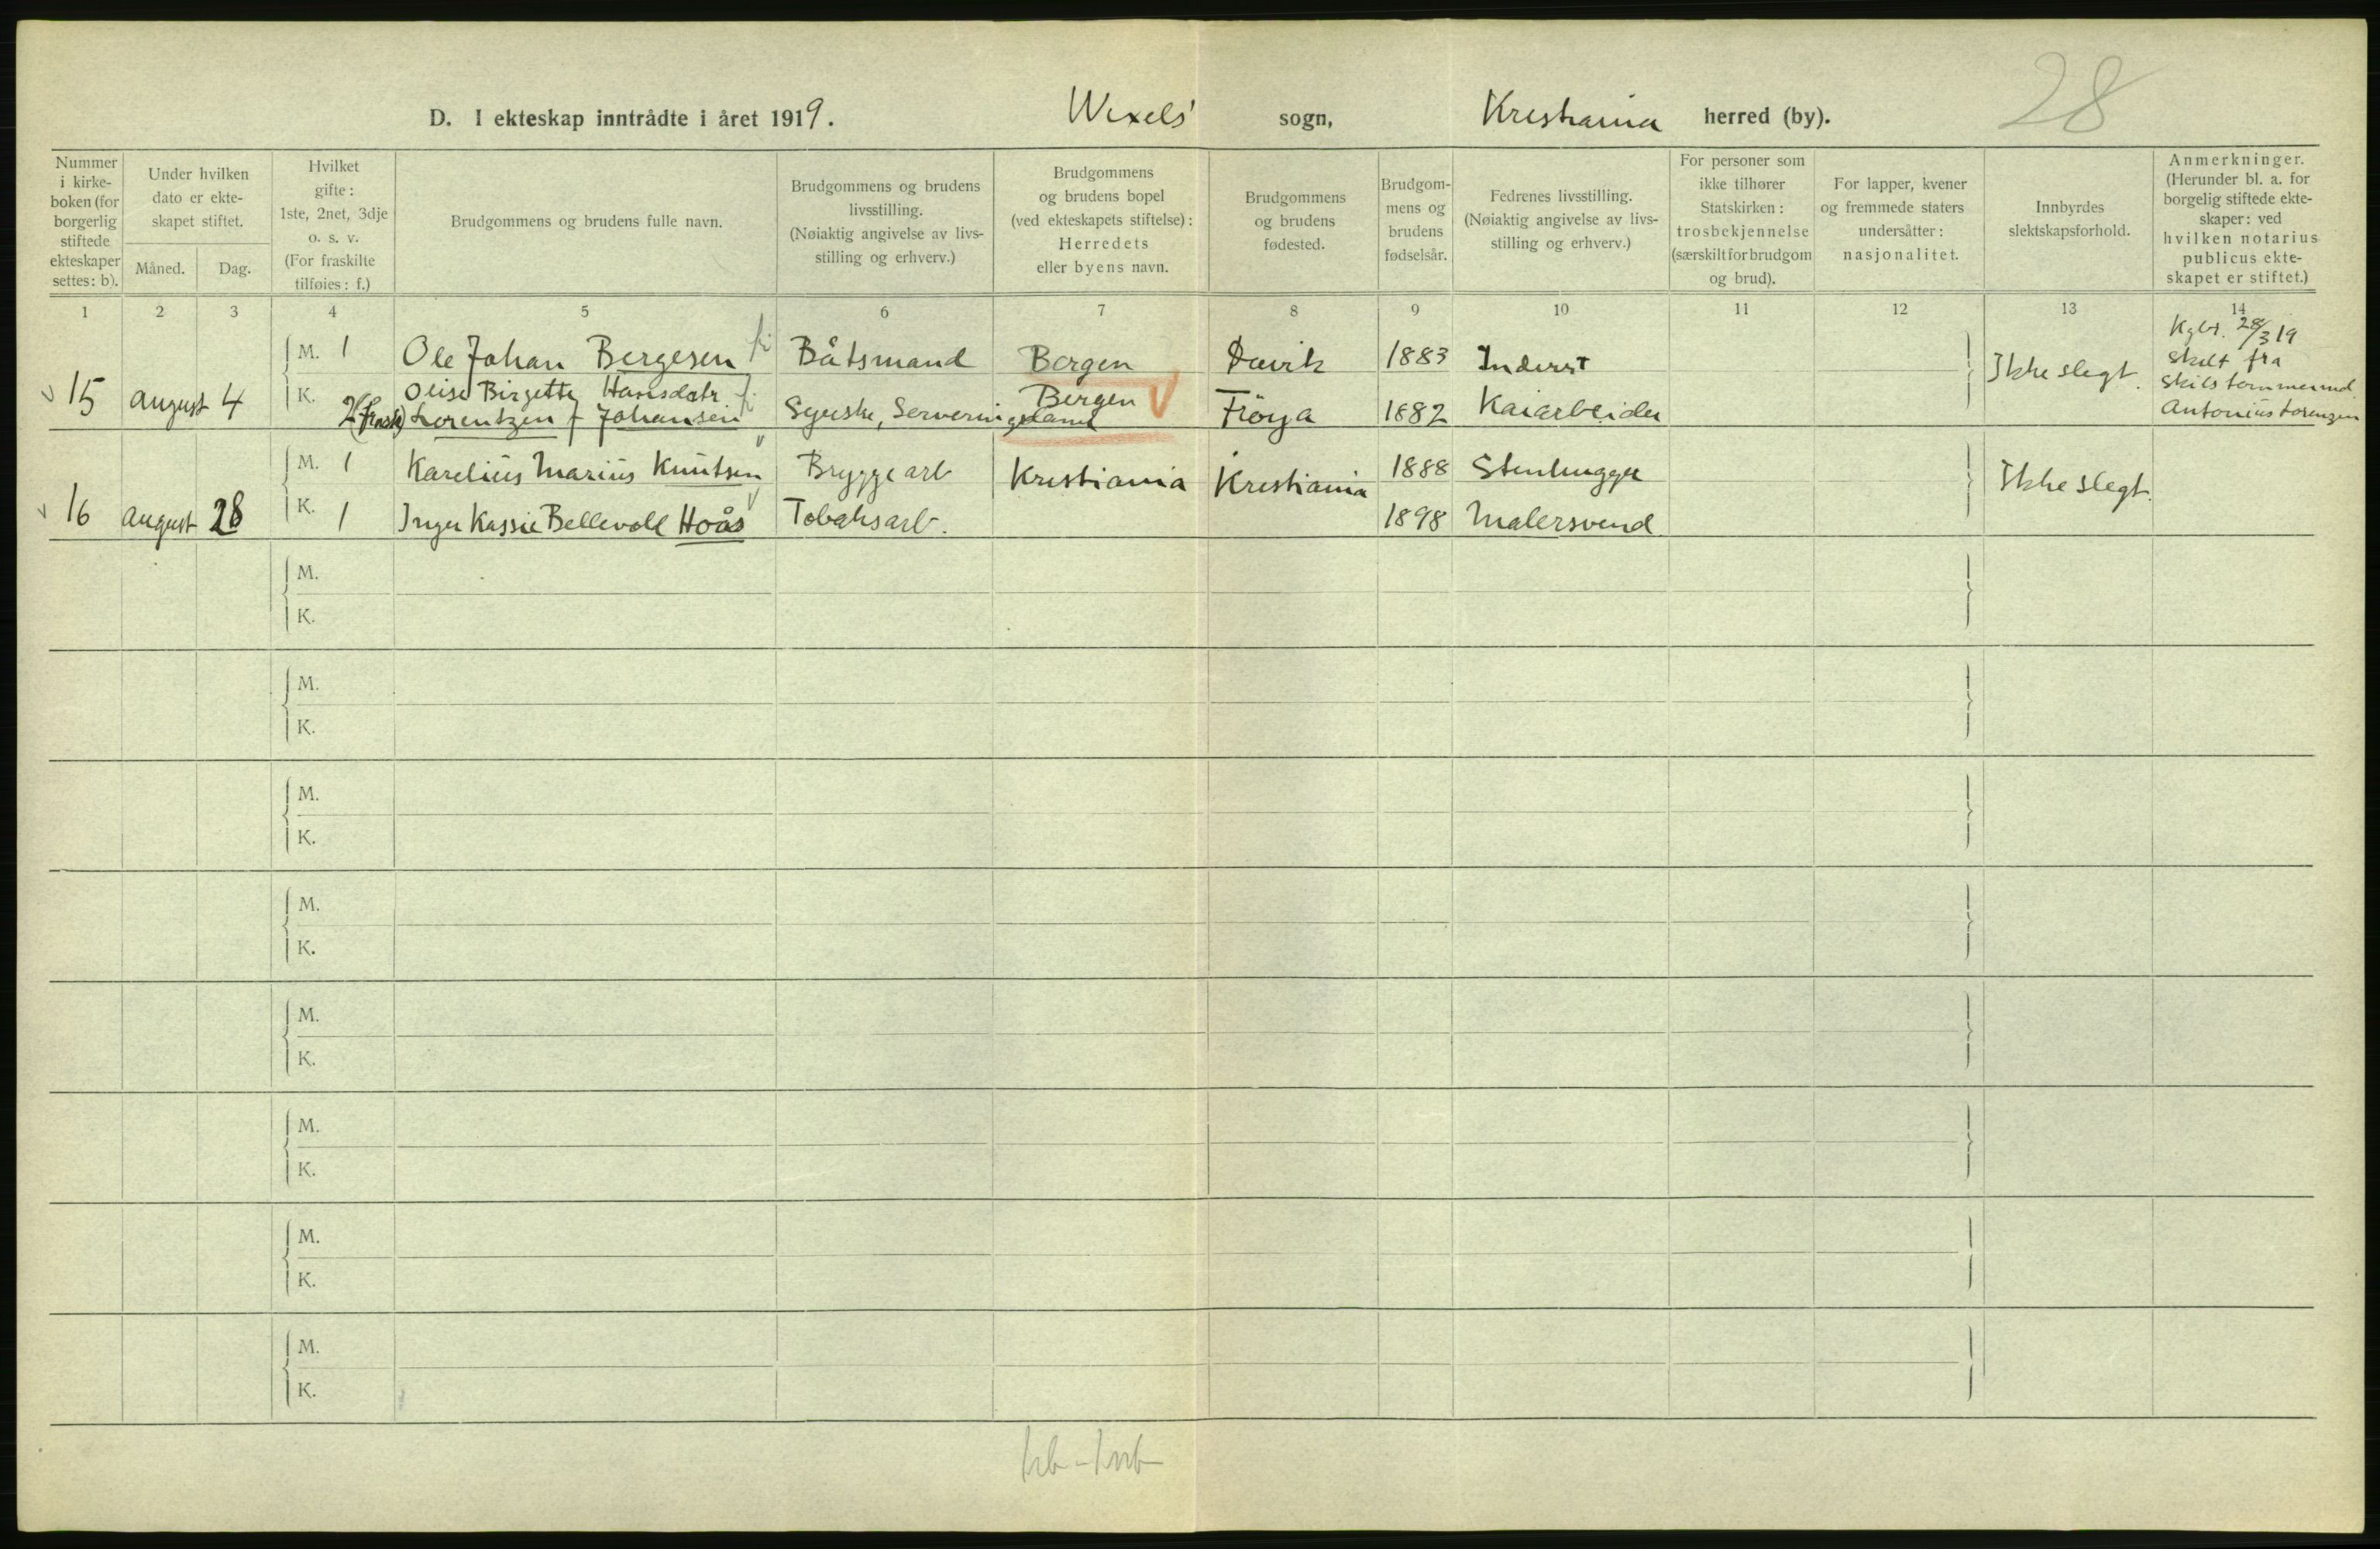 28
D. I ekteskap inntrådte i året 1919. Wexels' sogn, Kristiania herred (by).
Nummer i kirke-boken (for borgerlig stiftede ekteskaper settes: b).
Under hvilken dato er ekte-skapet stiftet.
Måned. Dag.
Hvilket gifte: 1ste, 2net, 3dje o. s. v. (For fraskilte tilføies: f.)
Brudgommens og brudens fulle navn.
Brudgommens og brudens livsstilling. (Nøiaktig angivelse av livs-stilling og erhverv.)
Brudgommens og brudens bopel (ved ekteskapets stiftelse): Herredets eller byens navn.
Brudgommens og brudens fødested.
Brudgom-mens og brudens fødselsår.
Fedrenes livsstilling. (Nøiaktig angivelse av livs-stilling og erhverv.)
For personer som ikke tilhører Statskirken: trosbekjennelse (særskilt for brudgom og brud).
For lapper, kvener og fremmede staters undersåtter: nasjonalitet.
Innbyrdes slektskapsforhold.
Anmerkninger. (Herunder bl. a. for borgelig stiftede ekte-skaper: ved hvilken notarius publicus ekte-skapet er stiftet.)
1 2 3 4 5 6 7 8 9 10 11 12 13 14
M. 1 Ole Johan Bergesen Båtsmand Bergen Davik 1883 Inderst
15 august 4 K. Olise Birgette Hansdatr
Lorentzen f Johansen Syerske, Serveringsdame Bergen Fröya 1882 Kaiarbeider
Ikke slegt.
28/3 19
skilt fra
Antonius Lorenzen
M. 1 Karelius Marius Knutsen Bryggearb Kristiania Kristiania 1888 Stenhugger
16 august 28 K. 1 Inger Kassie Bellevold Hoås Tobaksarb. 1898 Malersvend
Ikke slegt.
M.
K.
M.
K.
M.
K.
M.
K.
M.
K.
M.
K.
M.
K.
M.
K.